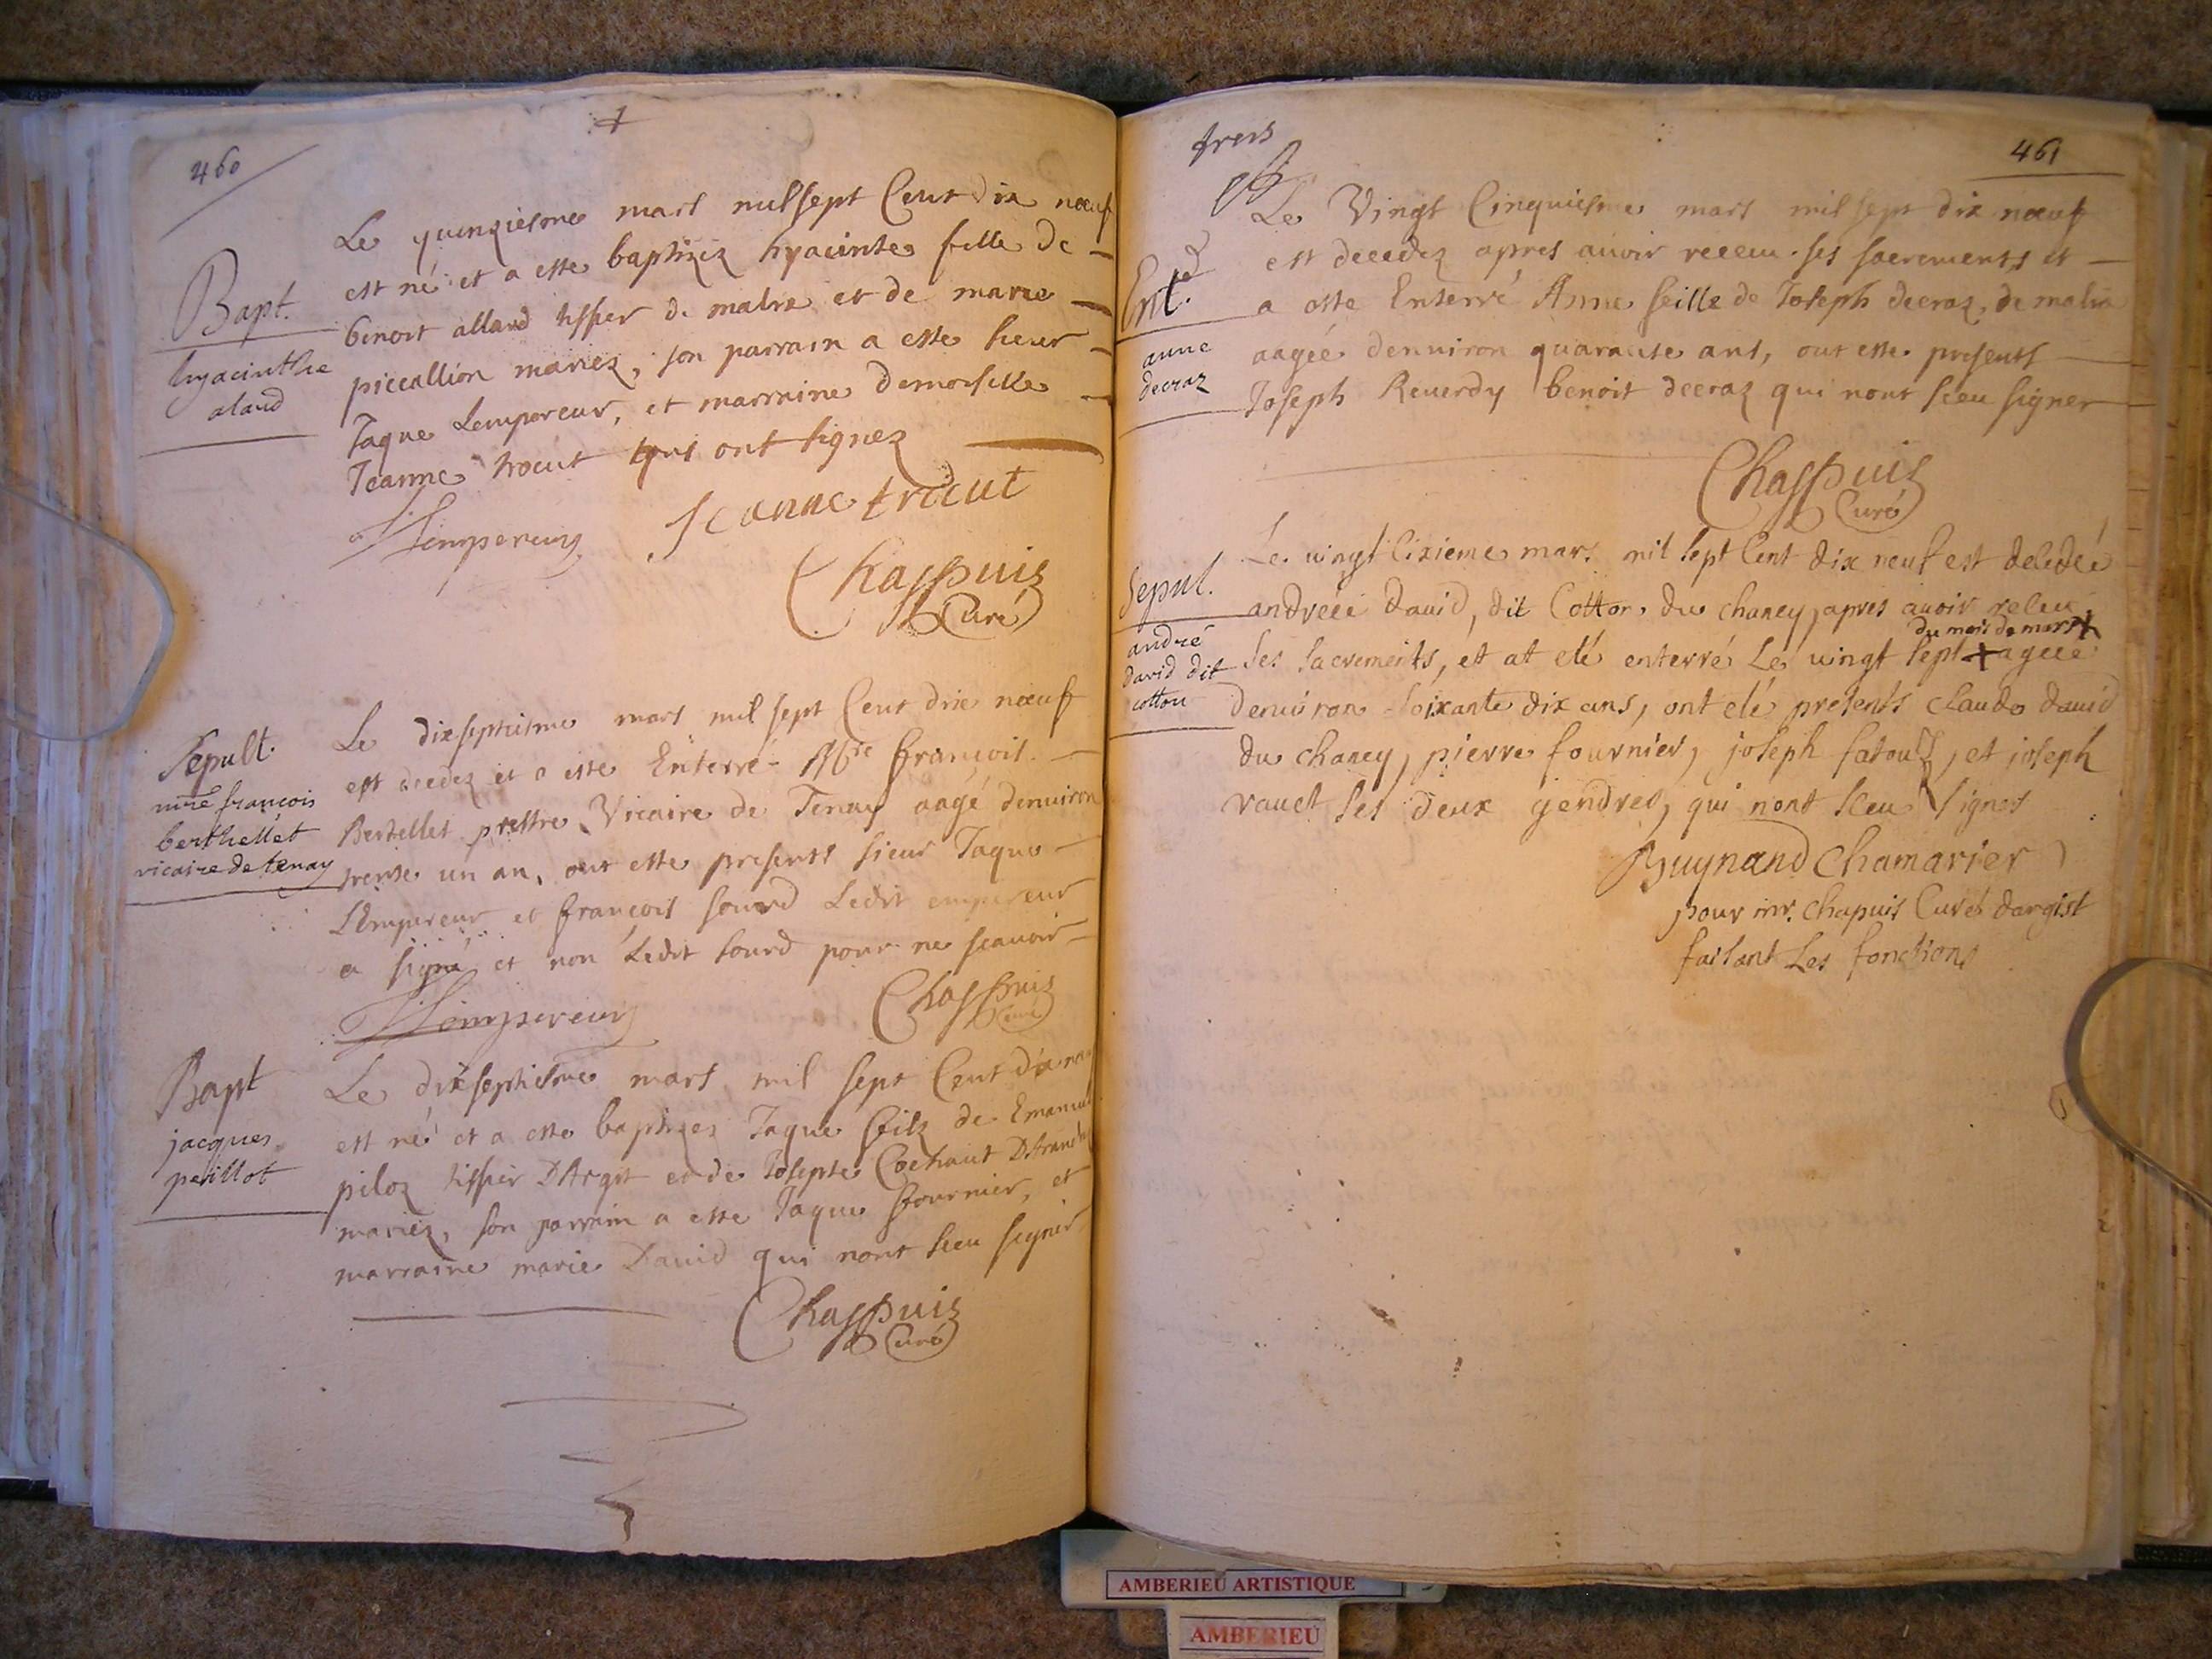 460
Le quinziesme mars mil sept Cent dix nœuf
est né et a esté baptizez hyacinte fille de
benoit alland tissier de malix et de marie
piccallion mariez, son parrain a esté sieur
Jaque Lempereur, et marraine demoiselle
Jeanne trocut qui ont signez
Bapt.
hyacinthe
alaud
Lempereur Jeanne trocut
Chappuis
Curé
Le dixseptiesme mars mil sept Cent dix nœuf
est decedez et a esté Enterré Mre françois
Bertellet prestre Vicaire de Tenay aagé denuiron
trente un an, ont esté presents sieur Jaque
LEmpereur et françois sourd Ledit empereur
a signé et non Ledit sourd pour ne scauoir
Sepult.
mre françois
berthellet
vicaire de tenay
Lempereur
Chappuis
Curé
Le dixseptiesme mars mil sept Cent dix
est né et a esté baptizez Jaque fils de Emanuel
piloz tissier DArgit et de Josepte Cochaut
mariez, son parrain a esté Jaque fournier, et
marraine marie Dauid qui nont sceu signer
Bapt
jacques
peillot
Chappuis
Curé
461
trois
Le Vingt Cinquiesme mars mil sept dix nœuf
est decedez apres auoir receu ses sacrements et
a esté Enterré Anne feille de Joseph decraz, de malix
aagée denuiron quarante ans, ont esté presents
Joseph Reuerdy benoit decraz qui nont sceu signer
Ent.
anne
decraz
Chappuis
Curé
Le uingt sixieme mars mil sept Cent dix neuf est decedeé
andreéé dauid, dit Cotton du chaney, apres auoir receu
du mois de mars +
ses sacrements, et at eté enterré Le uingt sept + ageéé
denuiron soixante dix ans, ont eté presents claude dauid
du chaney, pierre fournier, joseph fatoux, et joseph
rauet ses deux gendres, qui nont sceu signer
Sepul.
andré
david dit
cotton
Buynand Chamarier
pour mr. chapuis Curé dargist
faisant Les fonctions
AMBERIEU ARTISTIQUE
AMBERIEU